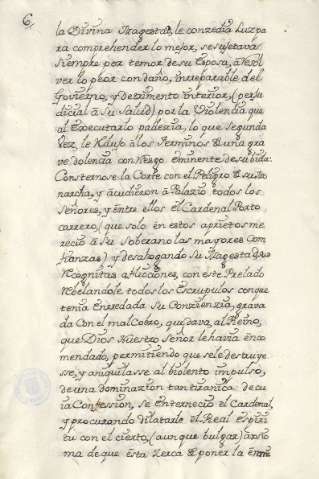 6,
la Divina Magestad, le conzedia luz pa
ra comprehender lo mejor, se sujetava
siempre por temor de su Esposa, à resol
ver lo peor con daño, irreparable del
Govierno, y detrimento interior, (perju
dicial à su Salud) por la Violencia que
al Executarlo padezia, lo que Segunda
Vez, le Redujo â los terminos de una gra
ve dolencia con Riesgo eminente de su bida.
Consternose la Corte con el Peligro de su Mo
narcha, y acudieron â Palazio todos los
Señores, y entre ellos el Cardenal Porto
carrero, (que solo en estos aprietos me
recio à su Soberano las mayores Con
fianzas) y desahogando Su Magestad sus
Recognitas aflicciones, con este Prelado
Rebelandole todos los Escrupulos con que
tenia Enredada su Conzienzia, grava
da con el mal Cobro, que dava, al Reino,
que Dios Nuestro Señor le havia enco
mendado, permitiendo que se le destruye
se, y aniquilasse al biolento impulso,
de una dominazion tan tiranica de cu
ia Confession, se Enternecio el Cardenal,
y procurando dilatarle el Real Espiri
tu con el cierto, (aunque bulgar) axio
ma de que esta zerca de poner la